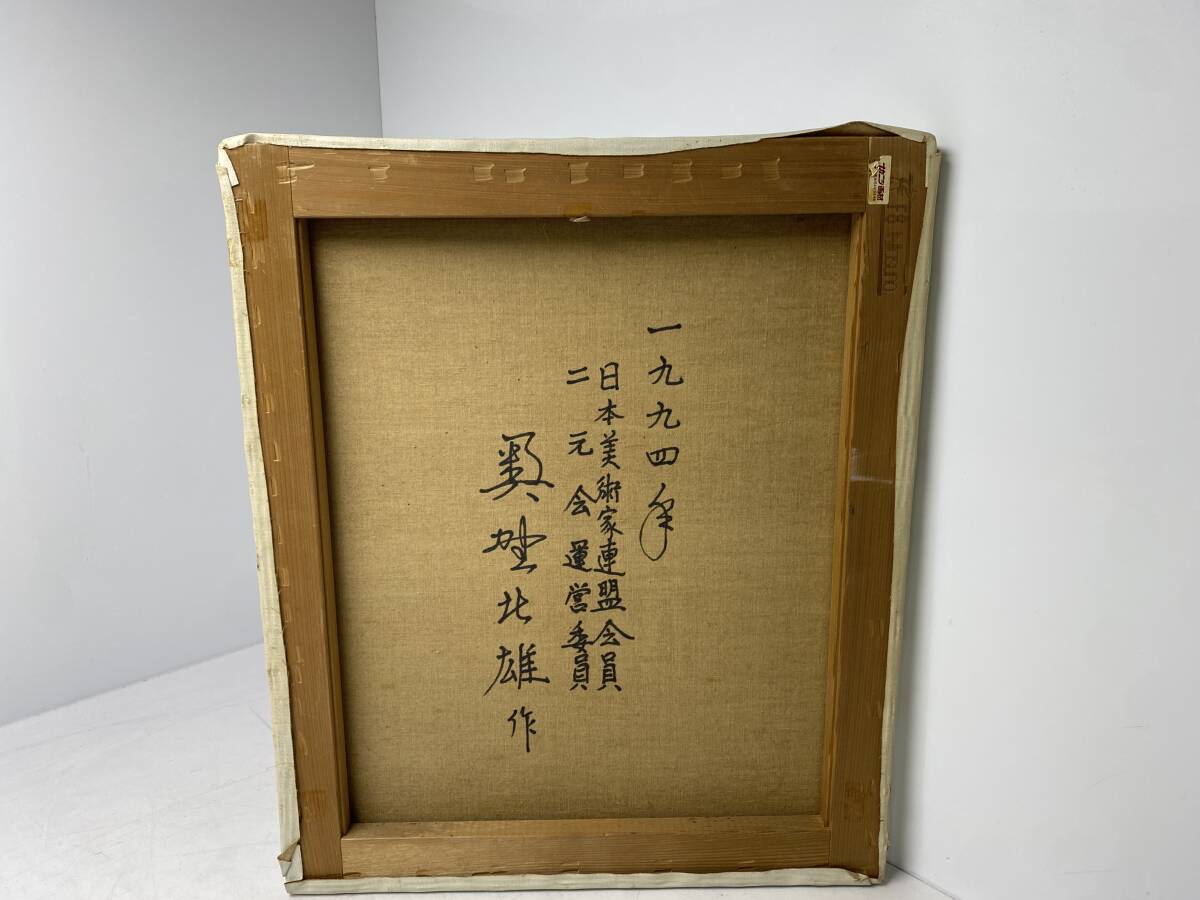 一九九四年
日本美術家連盟会員
二元会運営委員
奥埜北雄作